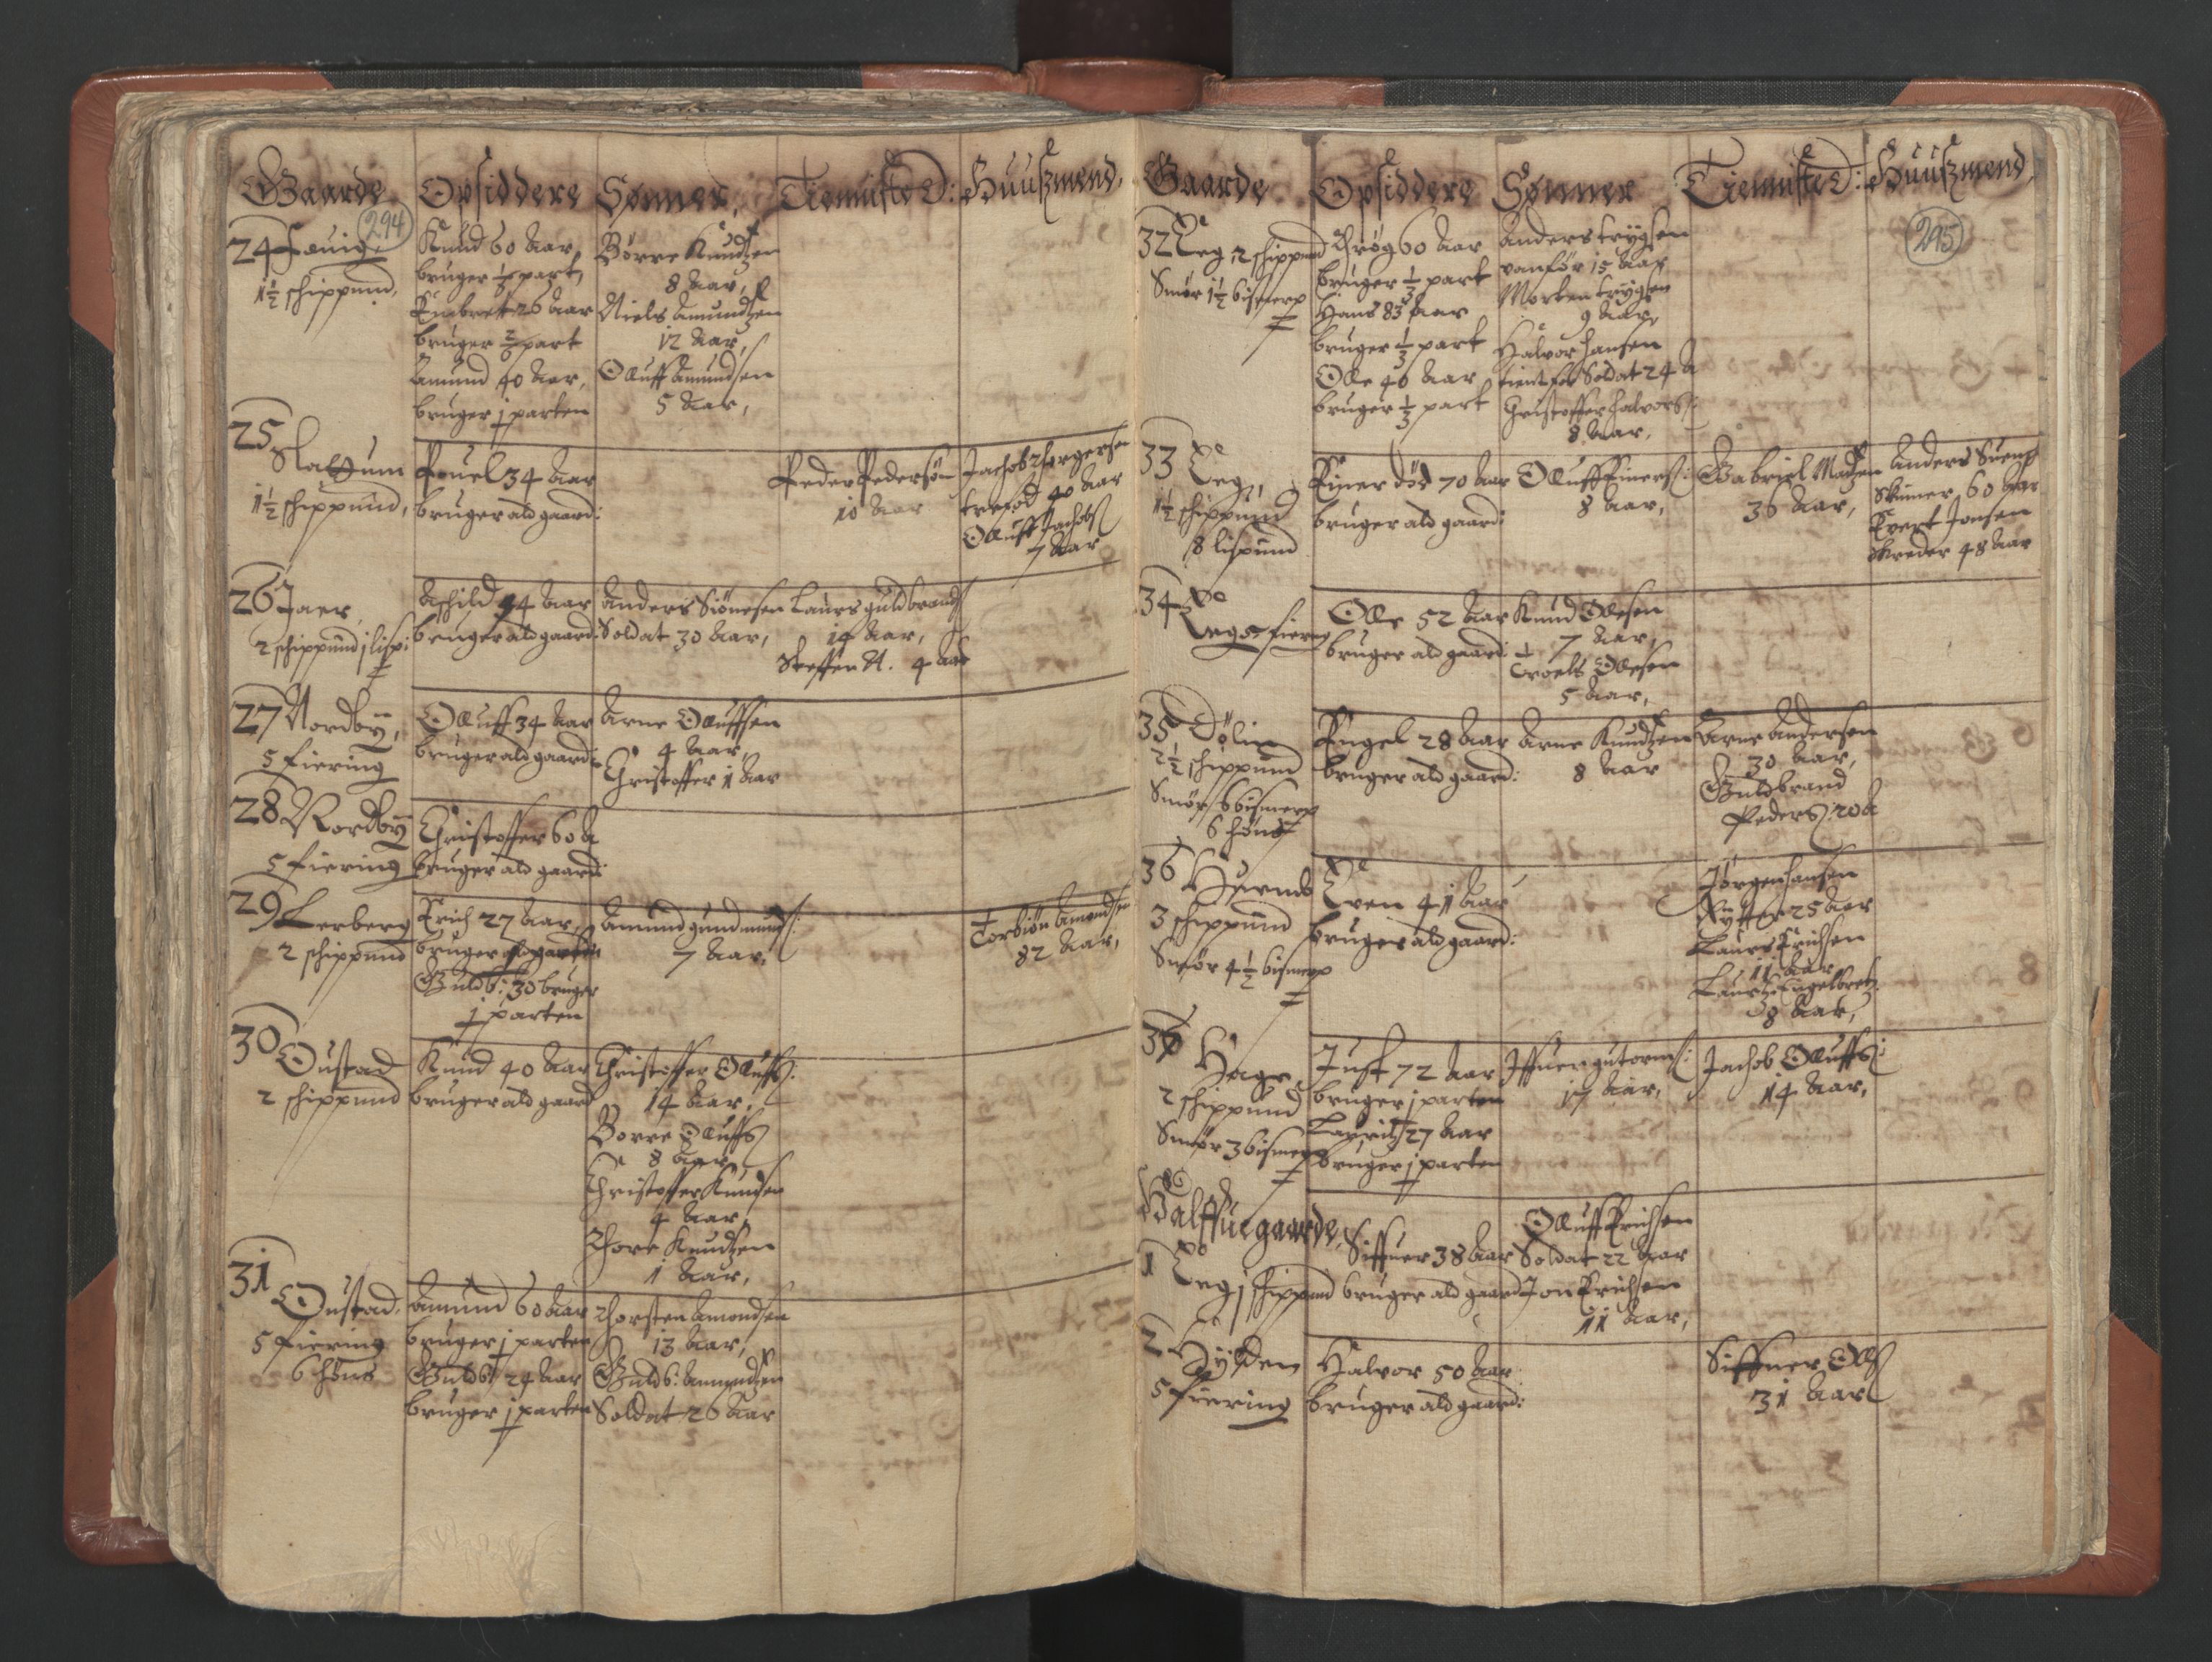 Gaarde Opsiddere Sønner, Tienniste D: Huuszmend,
294
24 Fauig
1½ schippund,
Knud 60 Aar,
bruger ½ part,
Embret 26 Aar
bruger 2/6 part
Amund 40 Aar,
bruger j parten
Børre Knudtzen
8 Aar,
Niels Amundtzen
12 Aar,
Oluff Amundsen
5 Aar,
25
Slattum
1½ schippund,
Pouel 34 Aar
bruger ald gaard:
Peder Pedersøn
10 Aar
Jachob Thorgersen
træfod 40 Aar
Oluff Jachobs
7 Aar
26 Jaer
2 schippund j lisp:
Aschild 94 Aar
bruger ald gaard:
Anders Siønesen
Soldat 30 Aar,
Laurs guldbrands
14 Aar,
Steffen A. 4 Aar
27 Nordby,
5 fiering
Oluff 34 Aar
bruger ald gaard:
Arne Oluffsen
4 Aar,
Christoffer 1 Aar
28 Nordby
5 fiering
Christoffer 60 A
bruger ald gaard:
29 Lerberg
2 schippund
Erich 27 Aar,
bruger
Guldb: 30 bruger
j parten
Amund gundmunds:
7 Aar,
Torbiøn Amondsen
82 Aar,
30 Oustad
2 schippund
Knud 40 Aar
bruger ald gaard
Christoffer Oluffs:
14 Aar,
Borre Oluffs
8 Aar,
Christoffer Knudsen
4 Aar,
Thore Knudtzen
1 Aar,
31
Oustad,
5 fiering
6 høns
Amund 60 Aar
bruger j parten
Guldb: 24 Aar
bruger j parten
Thorsten Amondsen
13 Aar,
Guldb: Amundtzen
Soldat 26 Aar
Gaarde Opsiddere Sønner Tienniste D: Huuszmend,
295
32 Eeg 2 schippund
Smør 1½ bismerp
Trøg 60 Aar
bruger ⅓ part
Hans 83 Aar
bruger ⅓ part
Olle 40 Aar
bruger ⅓ part
Anders trygsen
vanfør 15 Aar
Morten trygsen
9 Aar,
Halvor Hansen
tient for Soldat 24 A
Christoffer halvors:
8 Aar,
33 Eeg,
1½ schippund
8 lispund
Einer død 70 Aar
bruger ald gaard:
Oluff Einers:
8 Aar,
Gabriel Madtzen
36 Aar,
Anders Suens
Skinner 60 Aar
Evert Jonsen
skreder 48 Aar
34
Eeg 5 fiering
Olle 52 Aar
bruger ald gaard:
Knud Olesen
7 Aar,
Troels Olesen
5 Aar,
35 Dølin
2½ schippund
Smør 6 bismerp
6 høns
Engel 28 Aar
bruger ald gaard:
Arne Knudtzen
8 Aar
Arne Andersen
30 Aar,
Guldbrand
Peders: 20 A
36 Huernes
3 schippund
Smør 4½ bismerp
Even 41 Aar
bruger ald gaard:
Jørgen hansen
Rytter 25 Aar
Laurs Erichsen
11 Aar
Laurs Engelbretz:
8 Aar,
37
Hage
2 schippund
Smør 3 bismerp
Just 72 Aar
bruger j parten
Lauritz 27 Aar
bruger j parten
Iffuer gutorms:
17 Aar,
Jachob Oluffs:
14 Aar,
Halffuegaarde,
1 Eeg j schippund
Siffuer 38 Aar
bruger ald gaard
Oluff Erichsen
Soldat 22 Aar
Jon Erichsen
11 Aar,
2 Hylden
5 fiering
Halvor 50 Aar
bruger ald gaard:
Siffuer Olls
31 Aar